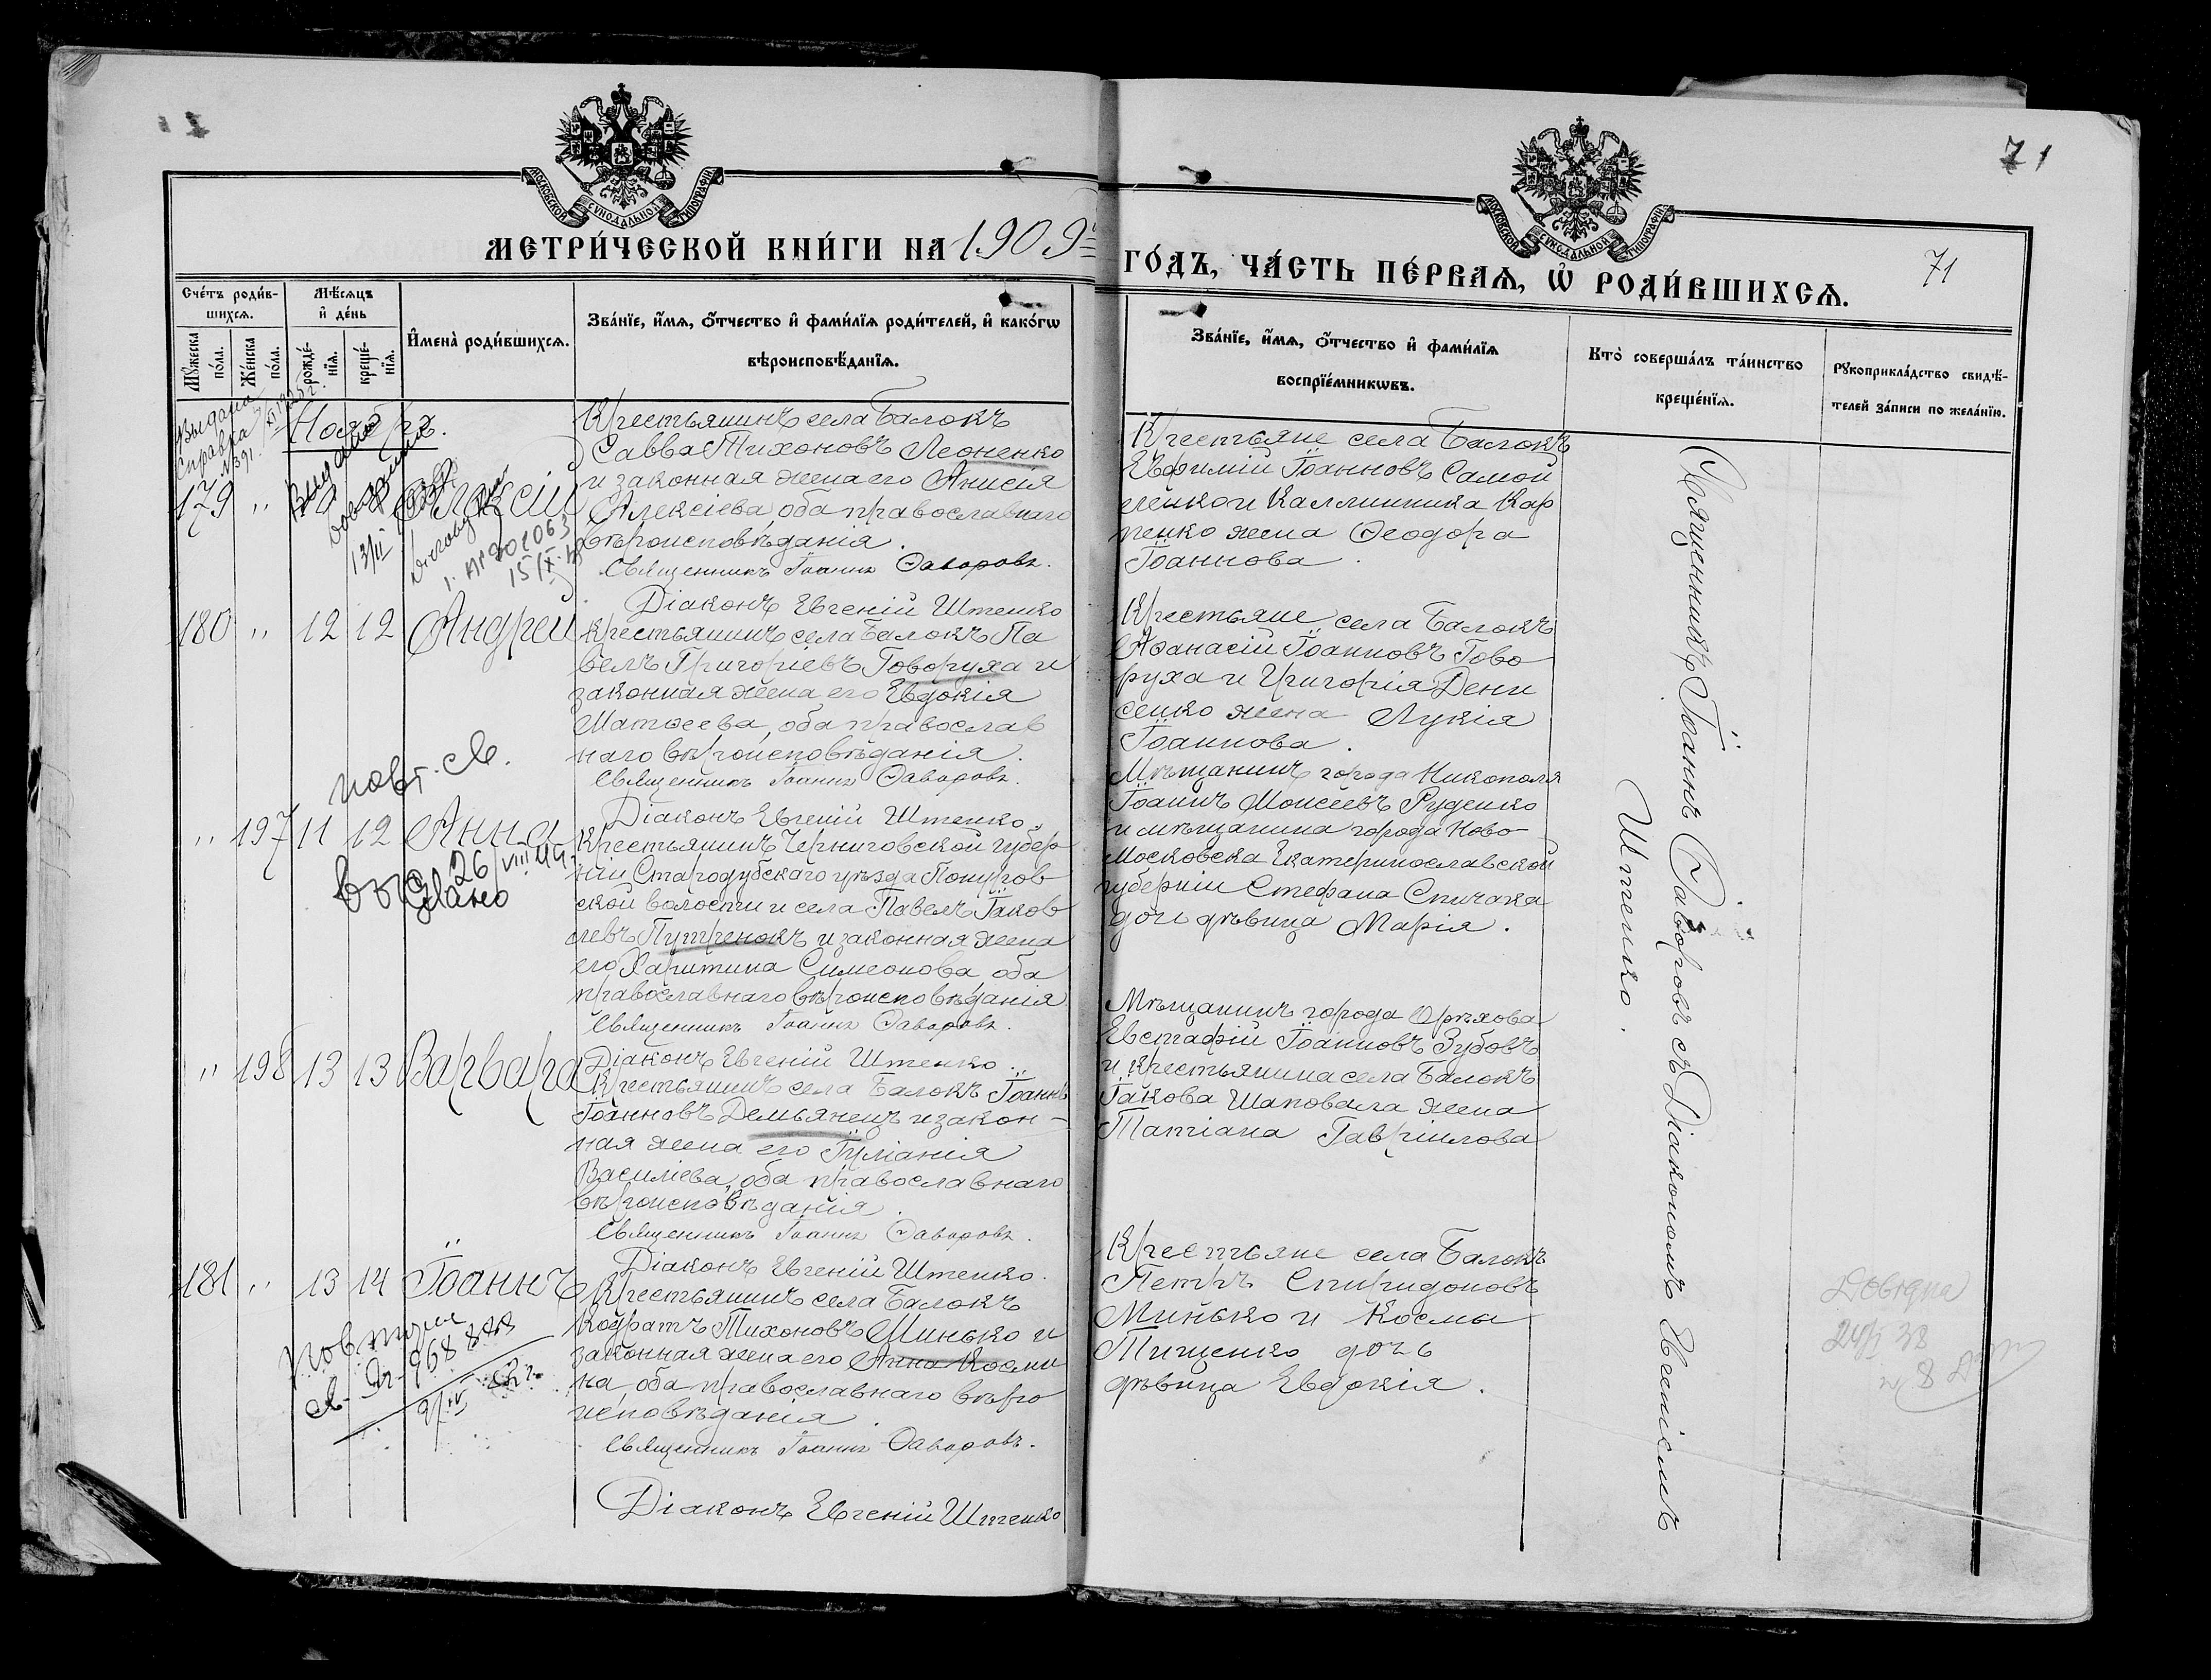 71
МОСКОВСКОЙ СѴНОДАЛЬНОЙ ТИПОГРАФІИ
МОСКОВСКОЙ СѴНОДАЛЬНОЙ ТИПОГРАФІИ
МЕТРИ́ЧЕСКОЙ КНИ́ГИ НА 1909й
ГО́ДЪ, ЧА́СТЬ ПЕ́РВАѦ, Ѡ҆ РОДИ́ВШИХСѦ.
71
Сче́тъ роди́в-
шихсѧ.
Мꙋжеска по́ла.
Же́нска по́ла.
Мѣ́сѧцъ
и҆ де́нь
рожде́-
нїѧ.
креще́-
нїѧ.
И҆мена̀ роди́вшихсѧ.
Зва́нїе, и҆́мѧ, ѻ҆́тчество и҆ фами́лїѧ роди́телей, и҆ како́гѡ
вѣроисповѣ́данїѧ.
Зва́нїе, и҆́мѧ, ѻ҆́тчество и҆ фами́лїѧ
воспрїе́мникѡвъ.
Кто̀ соверша́лъ та́инство
креще́нїѧ.
Рꙋкоприкла́дство свидѣ́-
телей за́писи по жела́нїю.
Выдана
справка
№391.
Ноябрь.
179 " Алексій
13/II
201063
Крестьянинъ села Балокъ
Савва Тихоновъ Леоненко
и законная жена его Анисія
Алексіева, оба православнаго
вѣроисповѣданія.
Священникъ Іоаннъ Ѳаворовъ.
Діаконъ Евгеній Штепко
Крестьяне села Балокъ
Евѳимій Іоанновъ Самой
ленко и Каллиника Кар
пенко жена Ѳеодора
Іоаннова.
180 " 12 12 Андрей
Крестьянинъ села Балокъ Па
велъ Григоріевъ Говоруха и
законная жена его Евдокія
Матѳеева, оба православ
наго вѣроисповѣданія.
Священникъ Іоаннъ Ѳаворовъ.
Діаконъ Евгеній Штепко.
Крестьяне села Балокъ
Аѳанасій Іоанновъ Гово
руха и Григорія Дени
сенко жена Лукія
Іоаннова.
повт. св.
" 197 11 12 Анна
26/VIII 49
Крестьянинъ Черниговской губер
ніи Стародубскаго уѣзда Понуров
ской волости и села Павелъ Іаков
левъ Путренокъ и законная жена
его Харитина Симеонова, оба
православнаго вѣроисповѣданія
Священникъ Іоаннъ Ѳаворовъ.
Діаконъ Евгеній Штепко.
Мѣщанинъ города Никополя
Іоаннъ Моисеевъ Руденко
и мѣщанина города Ново-
московска Екатеринославской
губерніи Стефана Спичака
дочь дѣвица Марія.
" 198 13 13 Варвара
Крестьянинъ села Балокъ Іоаннъ
Іоанновъ Демьянецъ и закон-
ная жена его Іуліанія
Василіева, оба православнаго
вѣроисповѣданія.
Священникъ Іоаннъ Ѳаворовъ.
Діаконъ Евгеній Штепко.
Мѣщанинъ города Орѣхова
Евстафій Іоанновъ Зубовъ
и крестьянина села Балокъ
Іакова Шаповала жена
Татіана Гавріилова
181 " 13 14 Іоаннъ
Крестьянинъ села Балокъ
Кодратъ Тихоновъ Минько и
законная жена его Анна Косми
на, оба православнаго вѣро
исповѣданія.
Священникъ Іоаннъ Ѳаворовъ.
Діаконъ Евгеній Штепко
Крестьяне села Балокъ
Петръ Спиридоновъ
Минько и Космы
Тищенко дочь
дѣвица Евдокія.
Священникъ Іоаннъ Ѳаворовъ съ Діакономъ Евгеніемъ
Штепко.